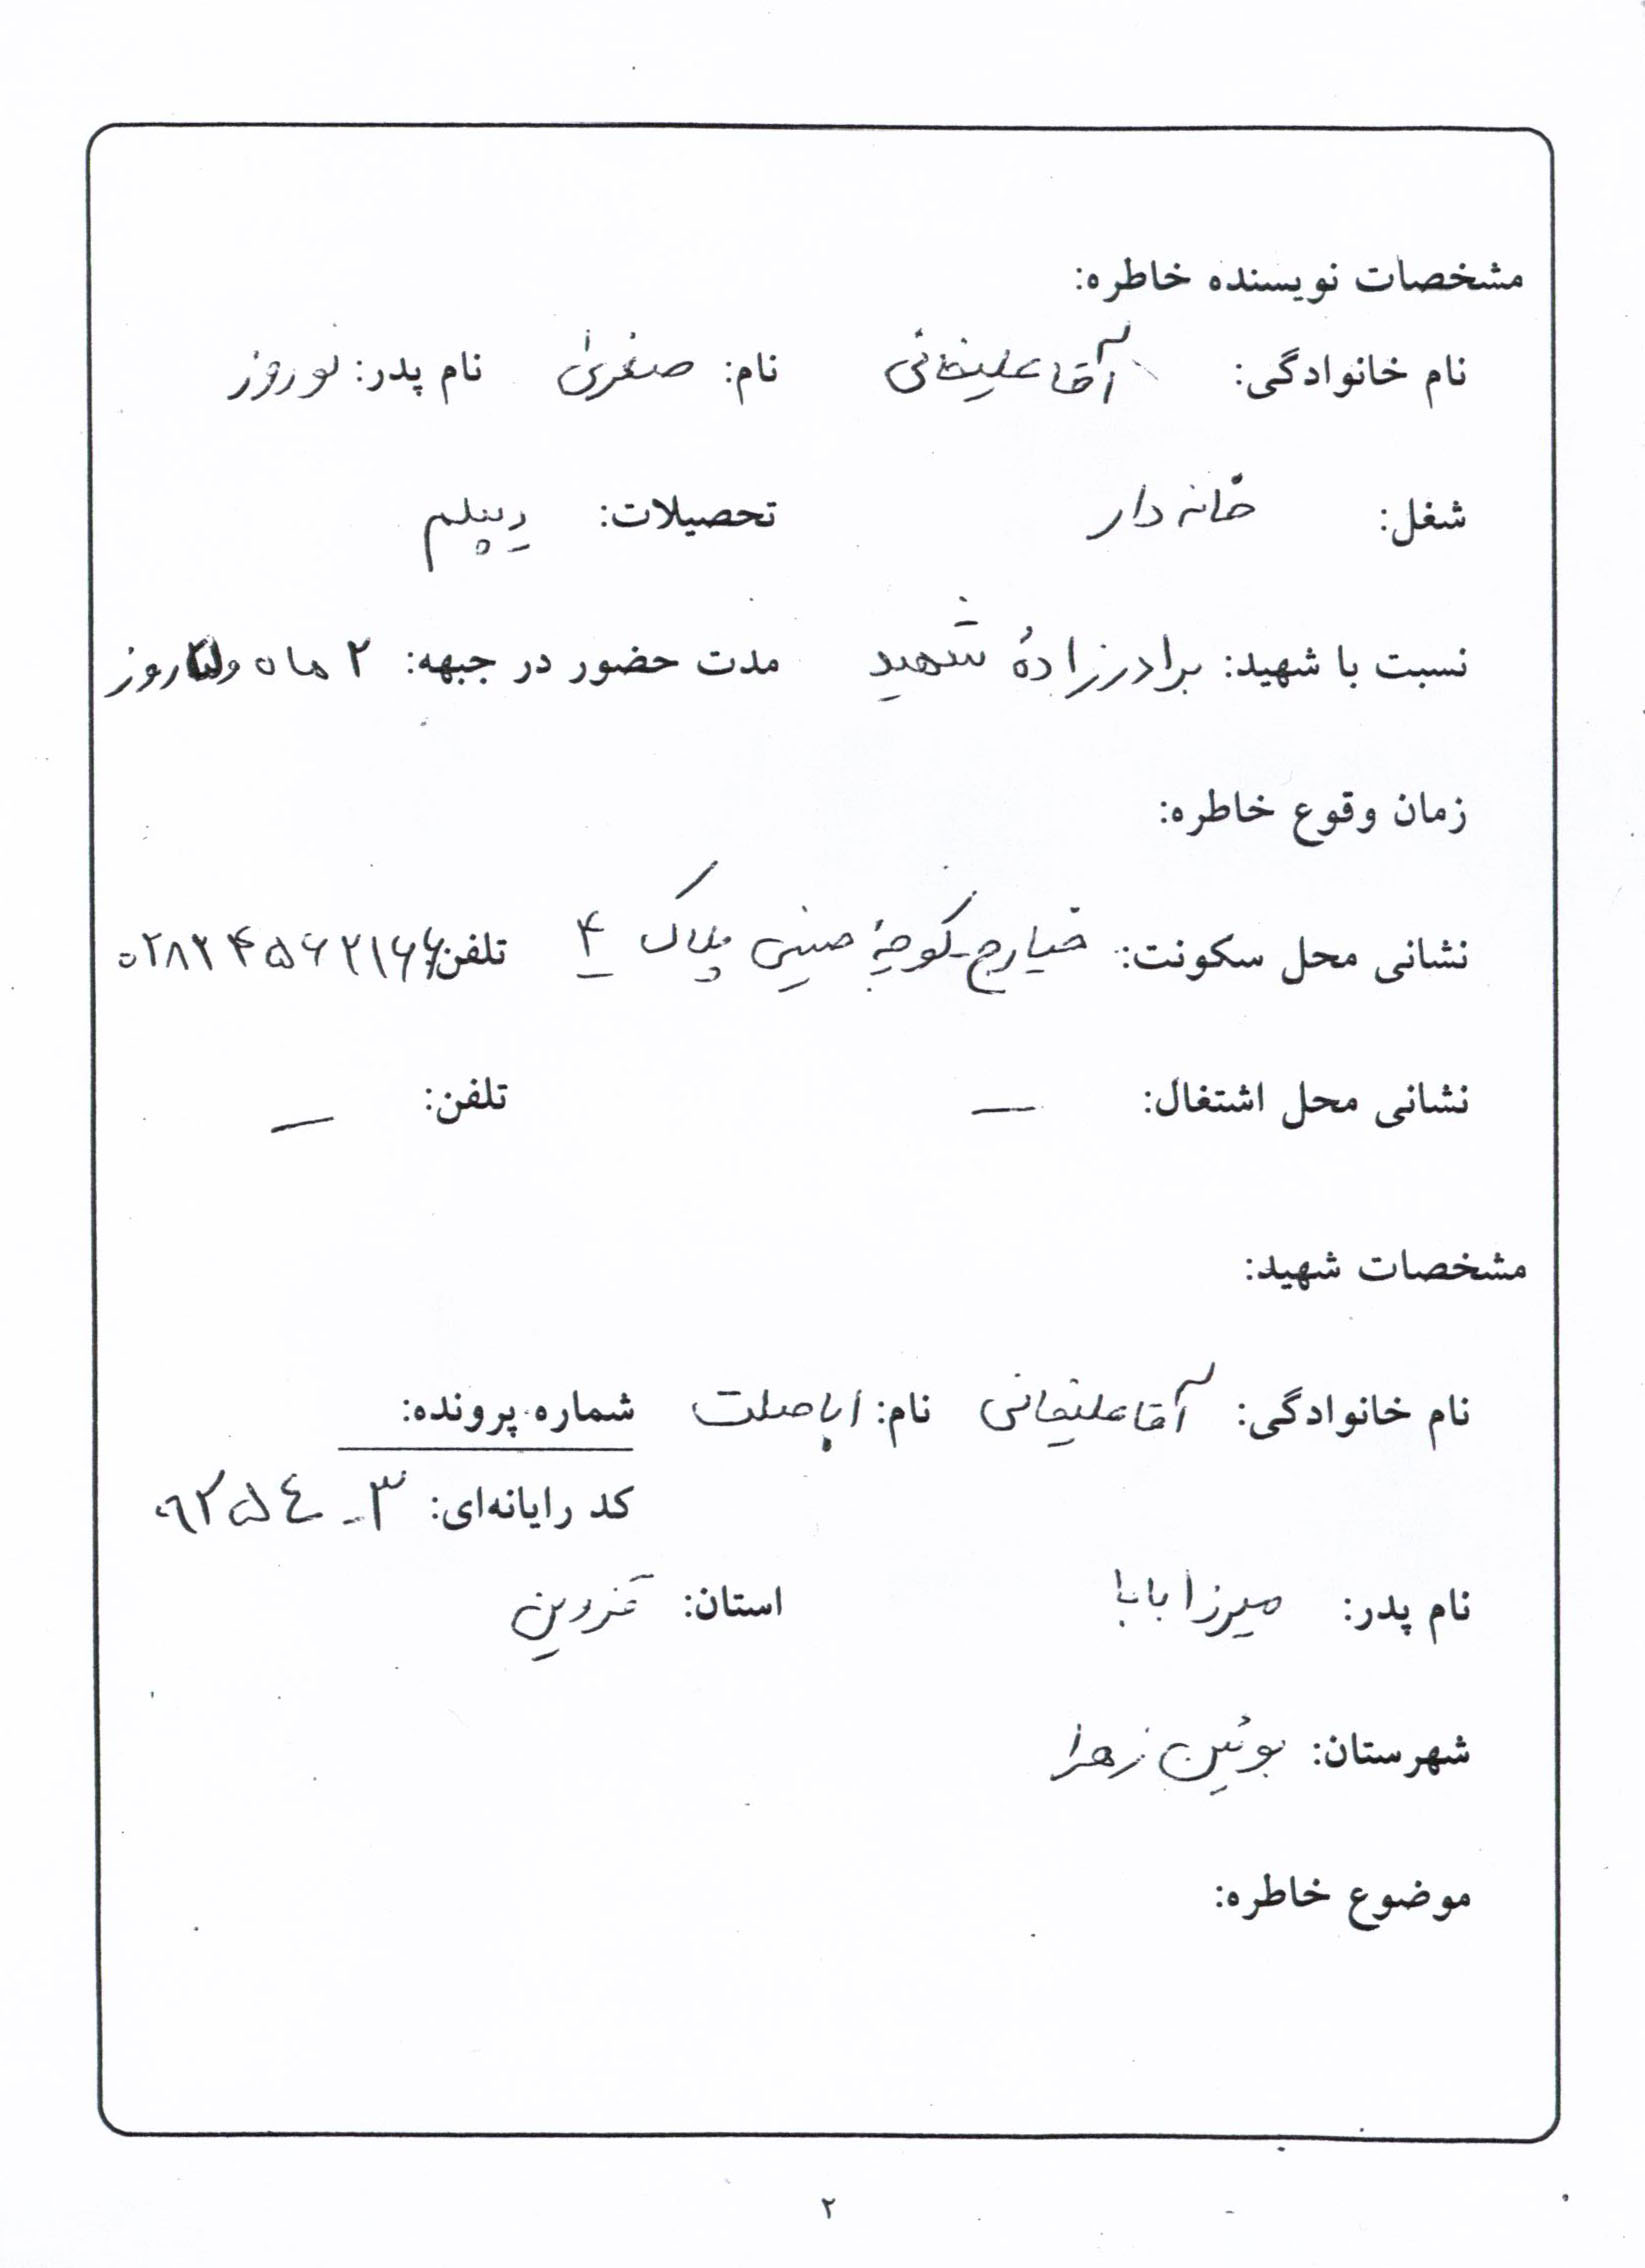 مشخصات نویسنده خاطره:
نام خانوادگی: آقاعلیخانی نام: صغری نام پدر: نوروز
شغل: خانه دار تحصیلات: دیپلم
نسبت با شهید: برادرزادهٔ شهید مدت حضور در جبهه: ۲ ماه و روز
زمان وقوع خاطره:
نشانی محل سکونت: خیارج - کوچهٔ پلاک ۴ تلفن:
نشانی محل اشتغال: — تلفن: —
مشخصات شهید:
نام خانوادگی: آقاعلیخانی نام: اباصلت شماره پرونده:
کد رایانه‌ای:
نام پدر: میرزا بابا استان: قزوین
شهرستان: بوئین زهرا
موضوع خاطره:
۲